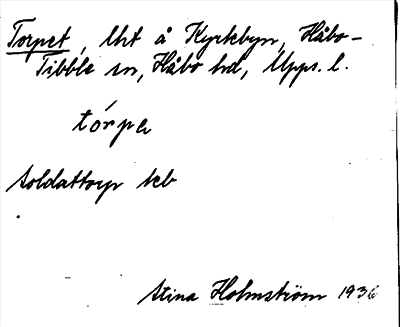 Torpet, Uht å Kyrkbyn, Håbo-
Tibble sn, Håbo hd, Upps. l.
tórpa
soldattorp kb
Stina Holmström 1936